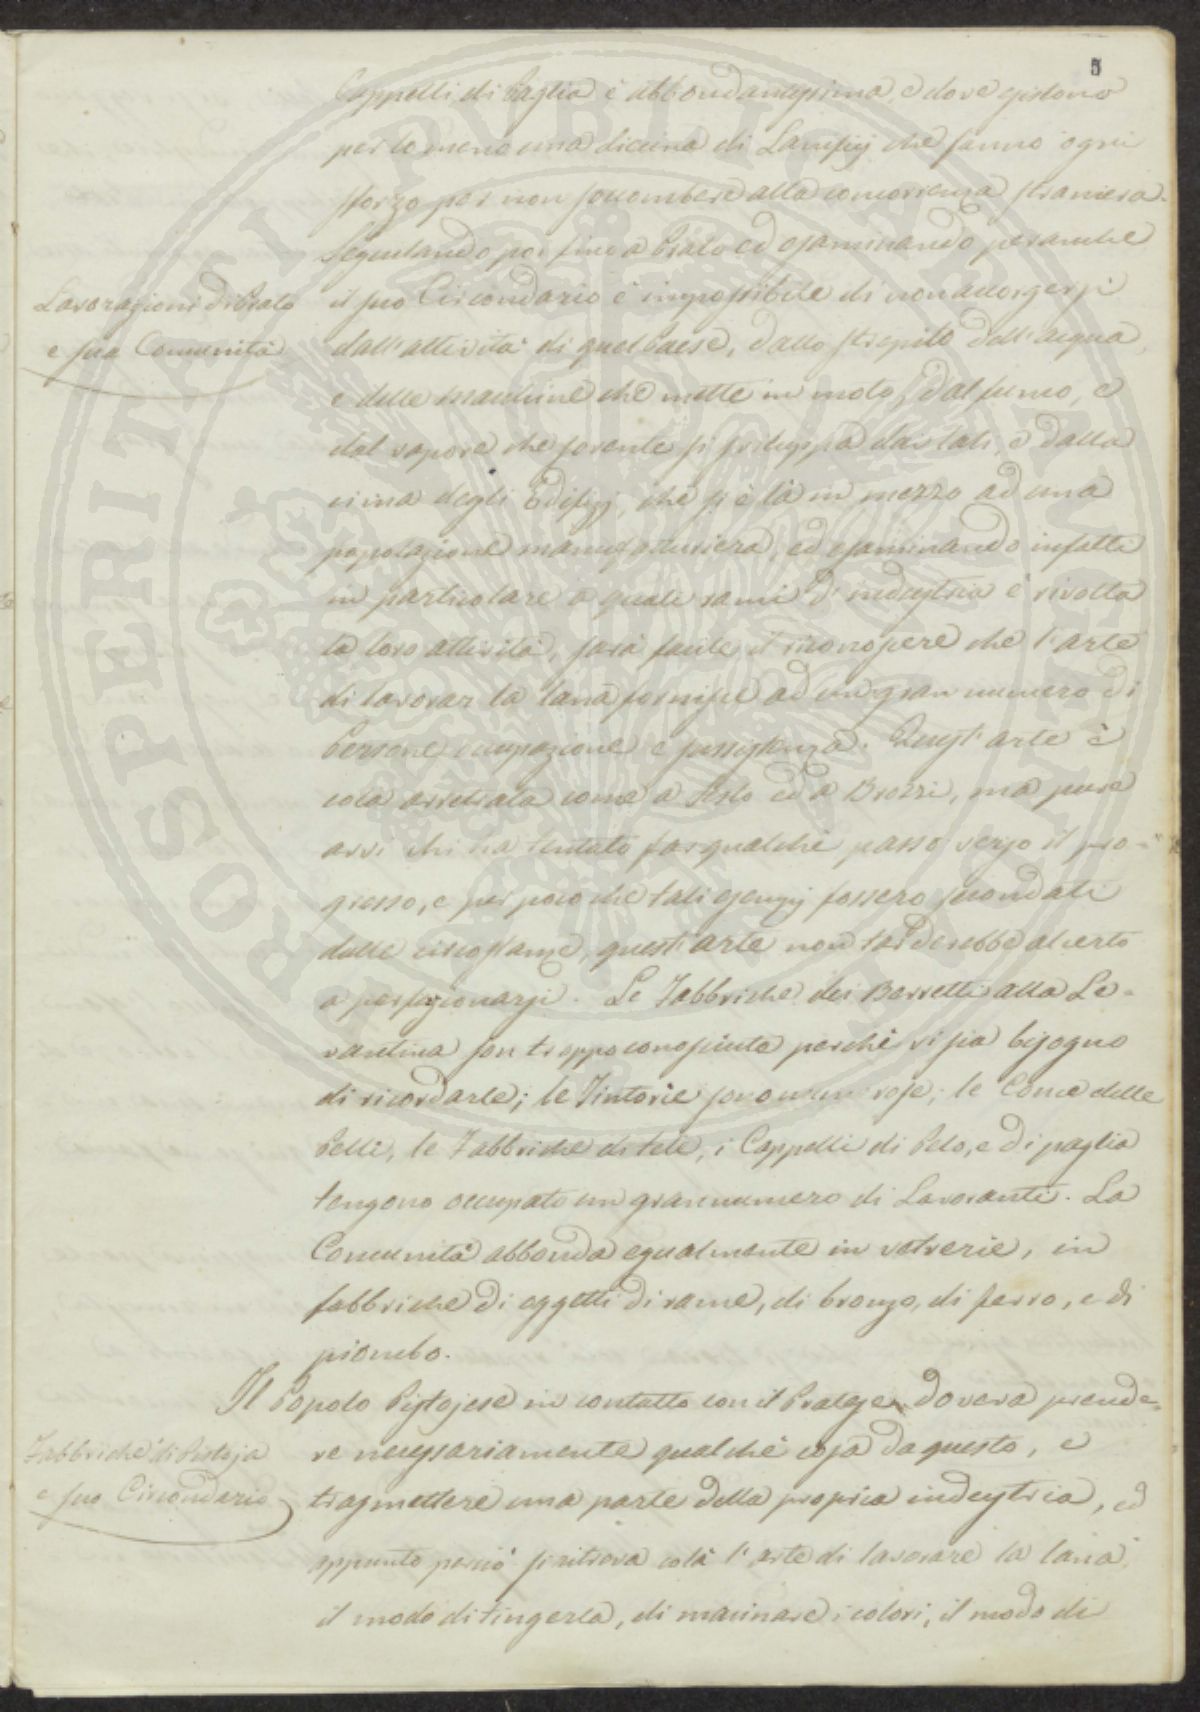 5
Cappelli di Paglia è abbondantissima, e dove esistono
per lo meno una diecina di Lanifizj che fanno ogni
sforzo per non soccombere alla concorrenza straniera.
Seguitando poi fino a Prato ed esaminando peranche
Lavorazioni di Prato
e sua Comunità
il suo Circondario è impossibile di non accorgersi
dall'attività di quel Paese, dallo strepito dell'acqua,
e delle macchine che mette in moto, dal fumo, e
dal vapore che sovente si sviluppa dai lati, e dalla
cima degli Edifizj, che si è là in mezzo ad una
popolazione manufatturiera, ed esaminando infatti
in particolare a quali rami d'industria è rivolta
la loro attività, sarà facile il riconoscere che l'arte
di lavorar la lana fornisce ad un gran numero di
Persone occupazione e sussistenza. Quest'arte è
colà arretrata come a Sesto ed a Brozzi, ma pure
avvi chi ha tentato far qualche passo verso il pro-
gresso, e per poco che tali esempj fossero secondati
dalle circostanze, quest'arte non tarderebbe al certo
a perfezionarsi. Le Fabbriche dei Berretti alla Le-
vantina son troppo conosciute perchè vi sia bisogno
di ricordarle; le Tintorie sono numerose; le Conce delle
Pelli, le Fabbriche di tele, i Cappelli di Pelo, e di paglia
tengono occupato un gran numero di Lavoranti. La
Comunità abbonda egualmente in vetrerie, in
fabbriche di oggetti di rame, di bronzo, di ferro, e di
piombo.
Il Popolo Pistojese in contatto con il Pratese doveva prende-
Fabbriche di Pistoja
e suo Circondario
re necessariamente qualche cosa da questo, e
trasmettere una parte della propria industria, ed
appunto perciò si ritrova colà l'arte di lavorare la lana,
il modo di tingerla, di macinare i colori, il modo di
PROSPERITATI PUBLICAE